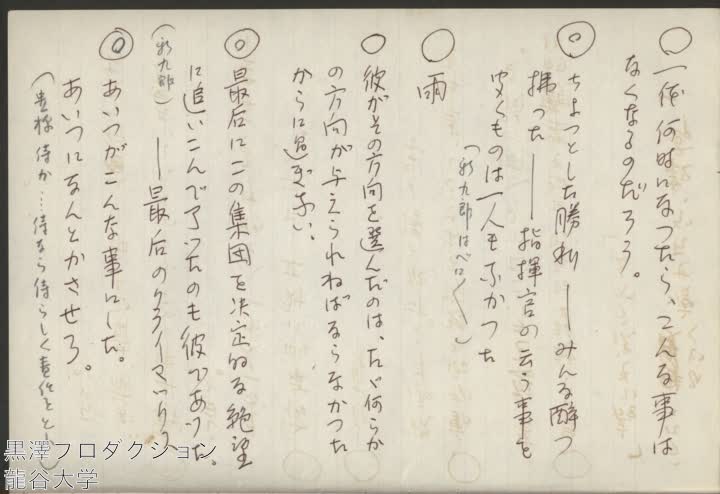 ○一体何時になつたら、こんな事は
なくなるのだろう。
◎ちよつとした勝利――みんな酔つ
拂つた――指揮官の云う事を
きくものは一人もなかつた
(新九郎はベロ〱)
○雨
○彼がその方向を選んだのは、たゞ何らか
の方向が与えられねばならなかつた
からに過ぎない、
◎最后にこの集団を决定的な絶望
に追いこんで了つたのも彼であつた。
(新九郎)――最后のクライマツクス
◎あいつがこんな事にした。
あいつになんとかさせろ。
(貴様侍か…侍なら侍らしく責任をとれ)
黒澤プロダクション
龍谷大学